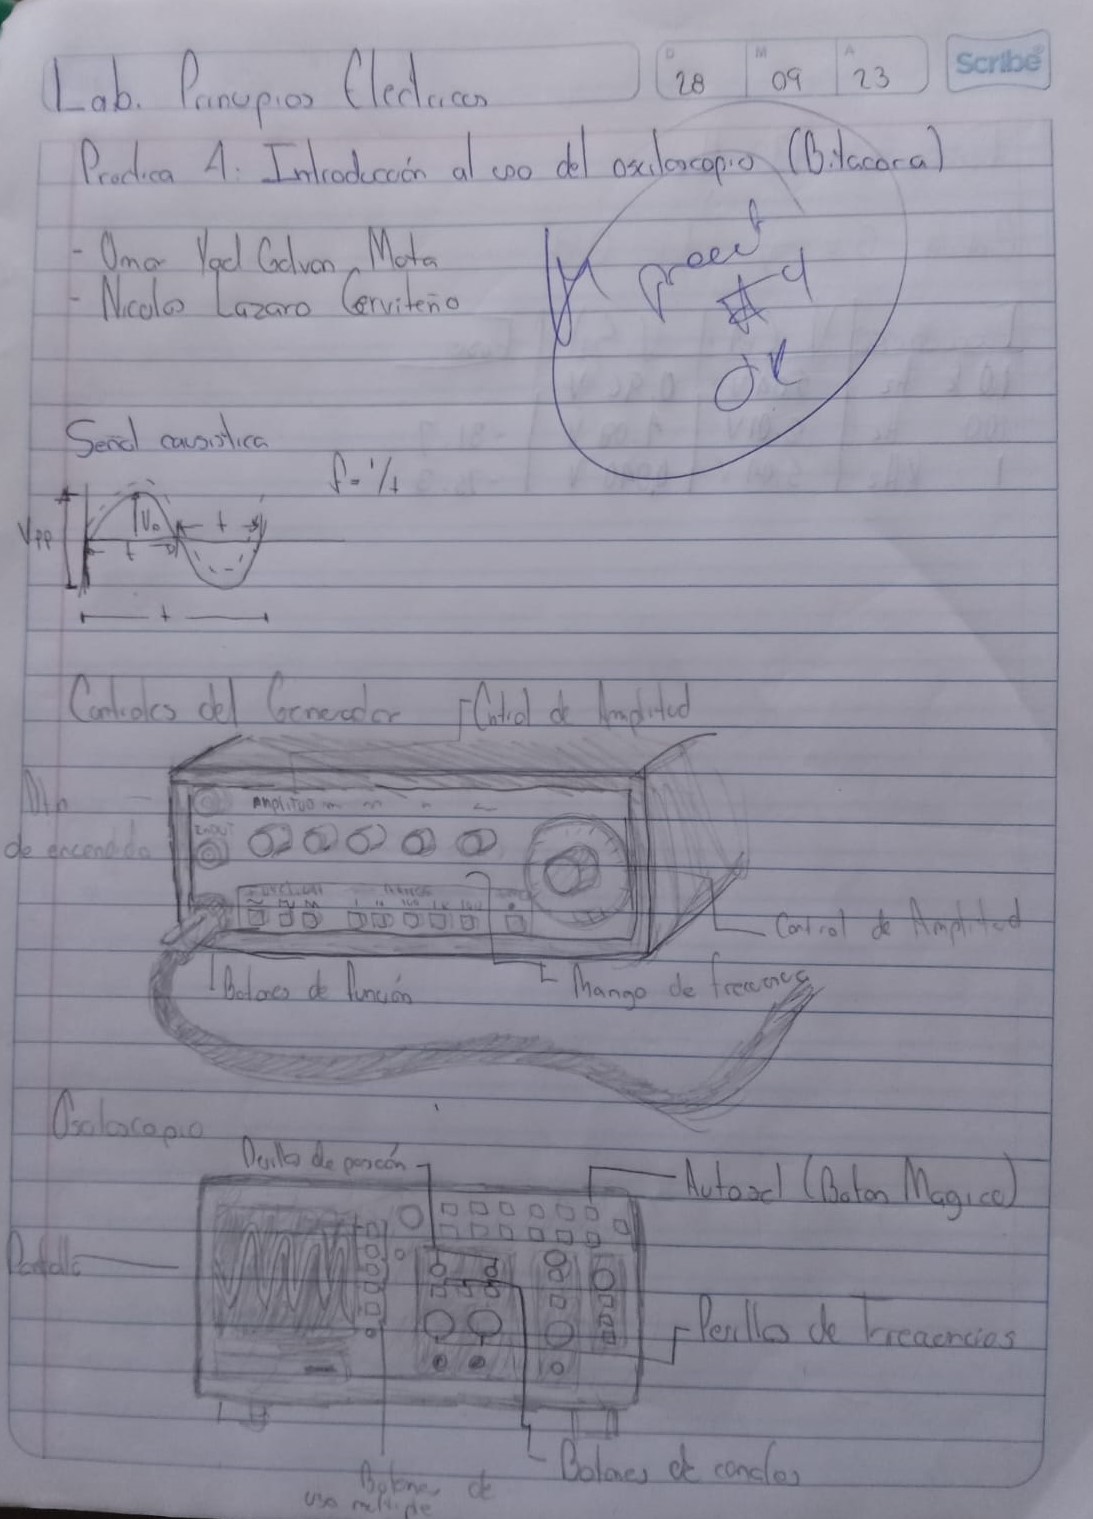 Lab. Principios Electricos
D M A
28 09 23
Scribe
Practica 4: Introducción al uso del osciloscopio (Bitacora)
- Omar Yael Galvan Mota
- Nicolas Lazaro Cerviteño
#4
OK
Señal
f = 1/t
Vpp
Vo
t
t
t
Controles del Generador
Control de Amplitud
de encendido
AMPLITUD
FUNCTION
RANGE
Control de Amplitud
Botones de Función
Rango de frecuencia
Osciloscopio
Perilla de posición
Autoset (Boton Magico)
Pantalla
Perillas de Frecuencias
Botones de canales
Botones de
uso multiple